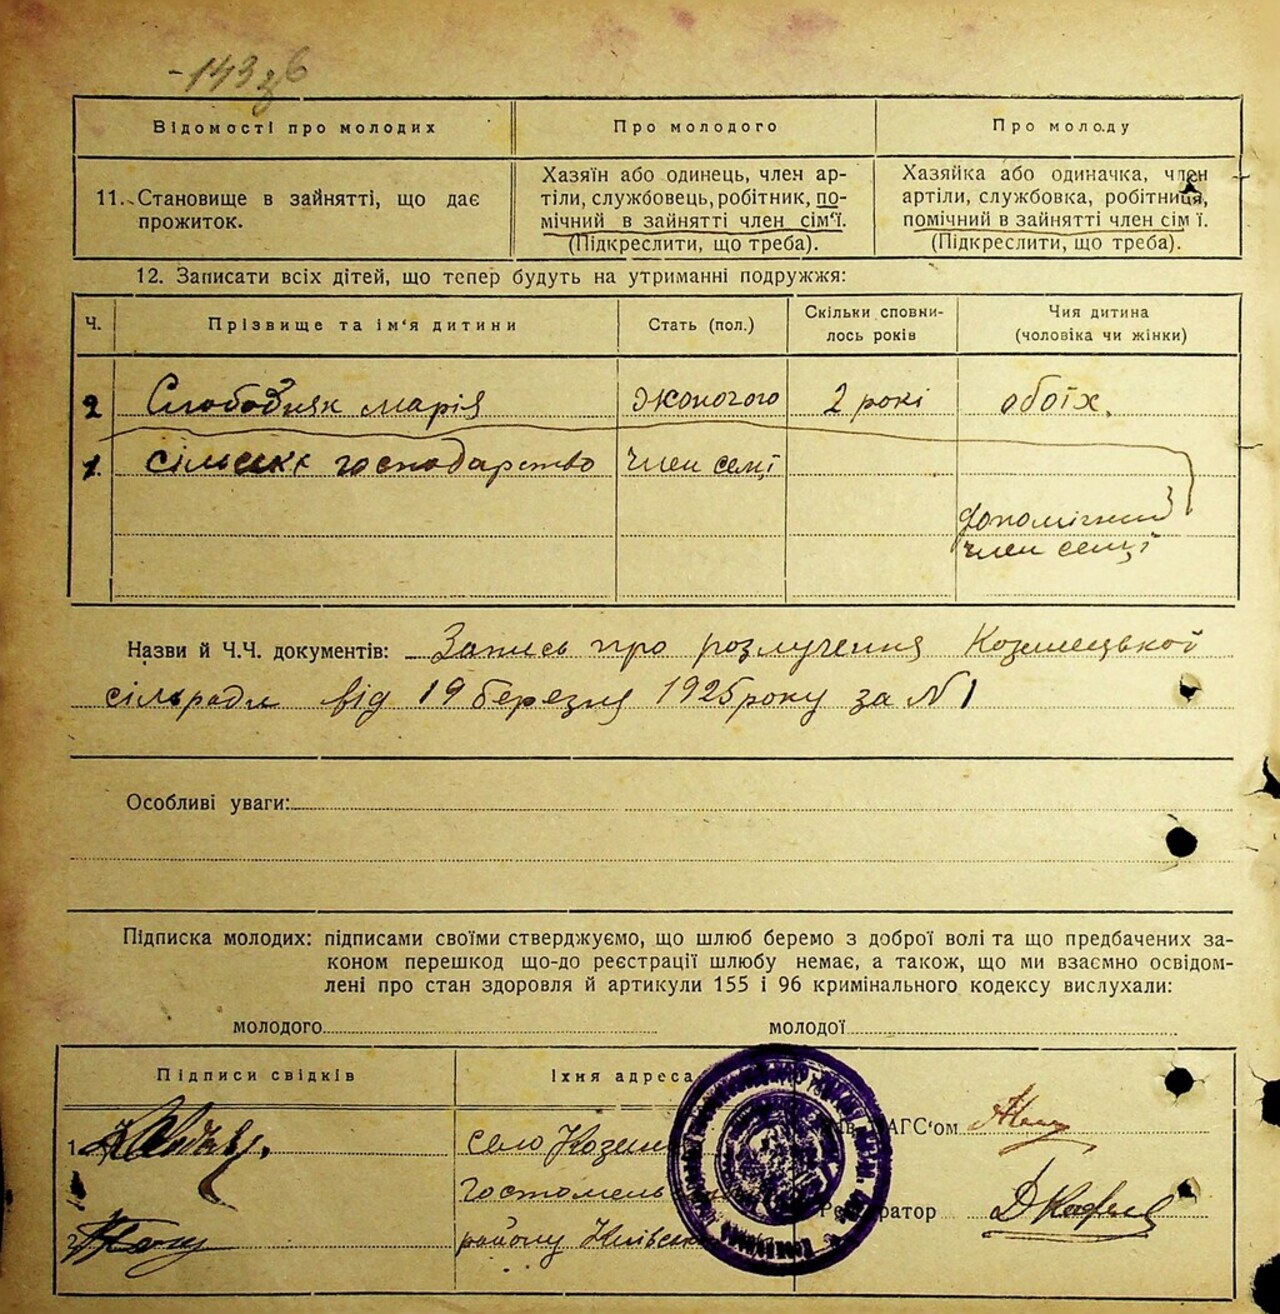 -143 зв
Відомості про молодих
Про молодого
Про молоду
11. Становище в зайнятті, що дає
прожиток.
Хазяїн або одинець, член ар-
тіли, службовець, робітник, по-
мічний в зайнятті член сім'ї.
(Підкреслити, що треба).
Хазяйка або одиначка, член
артіли, службовка, робітниця,
помічний в зайнятті член сім ї.
(Підкреслити, що треба).
12. Записати всіх дітей, що тепер будуть на утриманні подружжя:
Ч.
Прізвище та ім'я дитини
Стать (пол.)
Скільки сповни-
лось років
Чия дитина
(чоловіка чи жінки)
2 Слободяяк Марія
2 рокі
обоїх.
1. господарство
член семї
допомічний
член семї
Назви й Ч.Ч. документів: Запись про розлучення
сільради від 19 березня 1925 року за №1
Особливі уваги:
Підписка молодих: підписами своїми стверджуємо, що шлюб беремо з доброї волі та що предбачених за-
коном перешкод що-до реєстрації шлюбу немає, а також, що ми взаємно освідом-
лені про стан здоровля й артикули 155 і 96 кримінального кодексу вислухали:
молодого
молодої
Підписи свідків
Їхня адреса
АГС'ом
1.
село
Гостомель
Ре ратор
2.
району Київськ